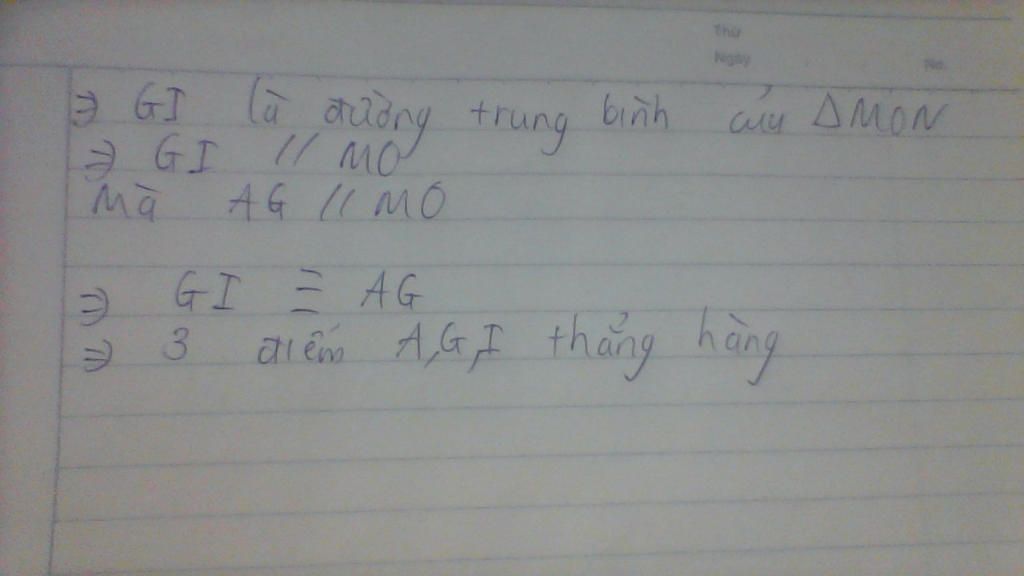 Thứ
Ngày No.
⇒ GI là đường trung bình của ΔMON
⇒ GI // MO
Mà AG // MO
⇒ GI ≡ AG
⇒ 3 điểm A,G,I thẳng hàng